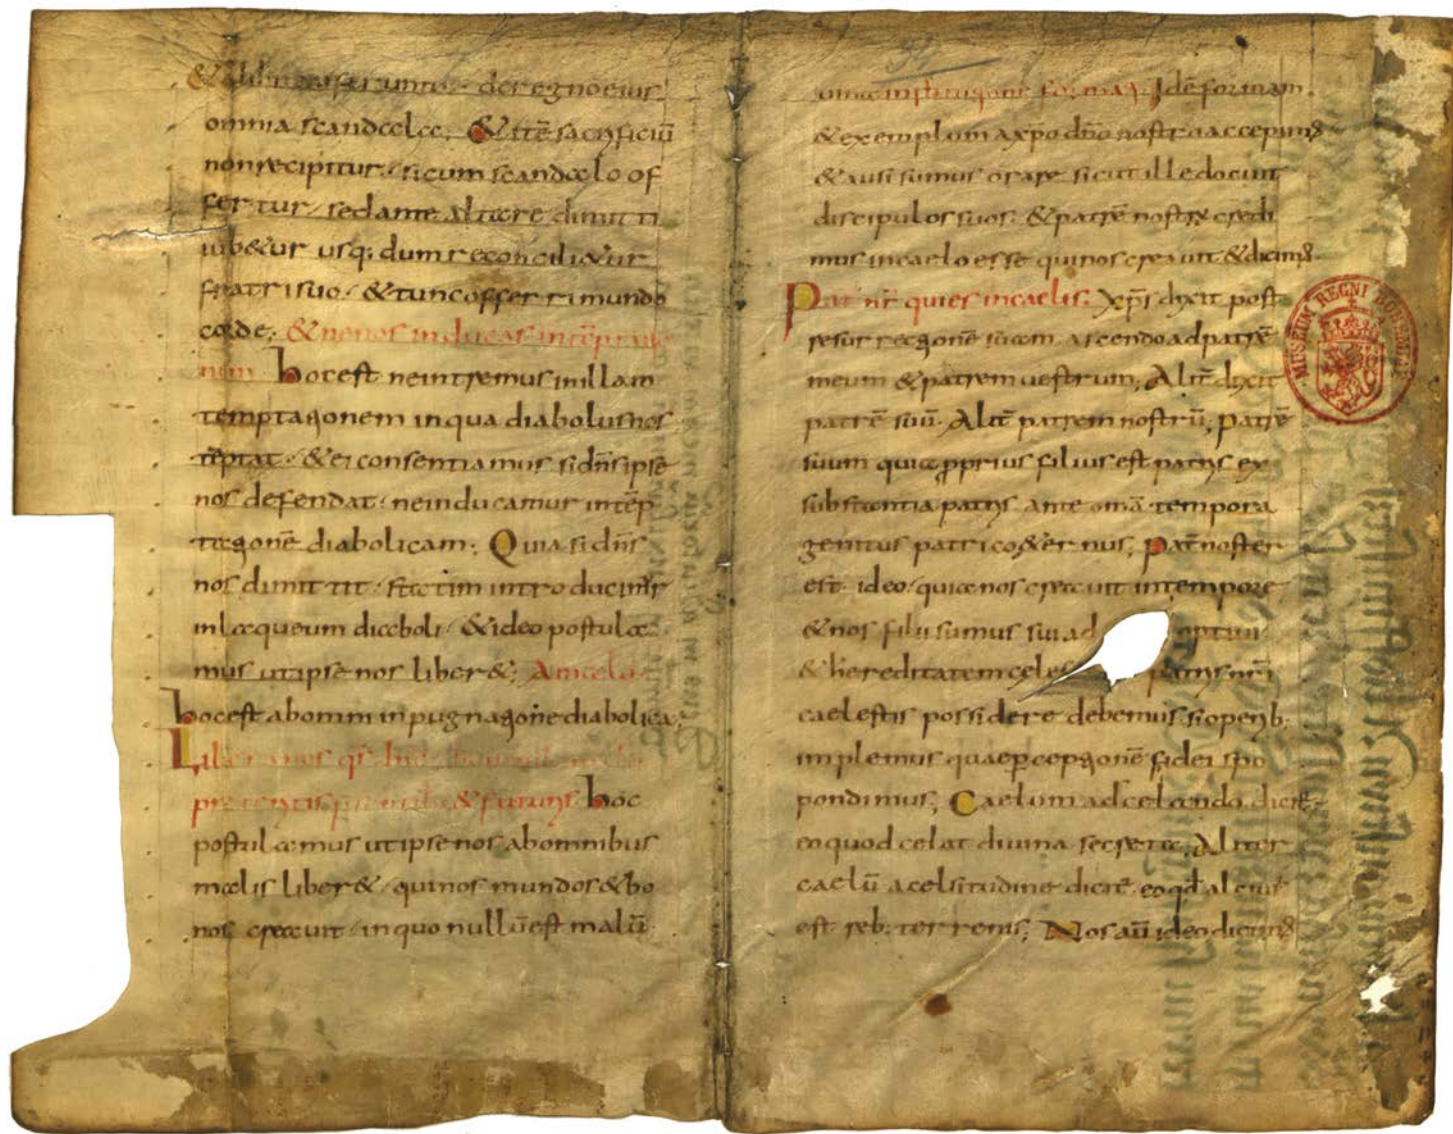 omnia scandala; & itē sacrificiū
non recipitur, si cum scandalo of
fertur, sed ante altare dimitti
iub&ur usq; dum reconcili&ur
fratri suo, & tunc offerri mundo
corde; & ne nos inducas in
hoc est ne intremus in illam
temptationem in qua diabolus nos
tēptat, & ei consentiamus si dn̄s ipse
nos defendat, ne inducamur in tēp
tationē diabolicam; Quia si dn̄s
nos dimittit, statim introducimur
in laqueum diaboli, & ideo postula
mus ut ipse nos liber&; A malo
hoc est ab omni inpugnatione diabolica;
Libera nos qs dne
& futuris hoc
postulamus ut ipse nos ab omnibus
malis liber&, qui nos mundos & bo
nos creavit, in quo nullū est malū
formati. Idē formam
& exemplum a xp̄o dn̄o nostro accepimus
& ausi sumus orare sicut ille docuit
discipulos suos, & patrē nostrū credi
mus in caelo esse qui nos creavit & dicimus
Pat nr qui es in caelis; Xp̄s dixit post
resurrectionē suam, ascendo ad patrē
meum & patrem vestrum; Alit̄ dixit
patrē suū. Alit̄ patrem nostrū, patrē
suum quia pprius filius est patris ex
substantia patris ante omā tempora
genitus patri coaeternus; Pat̄ noster
est ideo, quia nos creavit in tempore
& nos filii sumus sui ad optivi
& hereditatem celes patris nr̄i
caelestis possidere debemus, si operib;
implemus quae p̱ceptionē fidei spo
pondimus; Caelum a celando dicit̄
eo quod celat divina secreta; Aliter
caelū a celsitudine dicit̄ eo qd̄ altius
est reb; terrenis; Nos aū ideo dicimus
MUSEUM REGNI BOHEMIAE